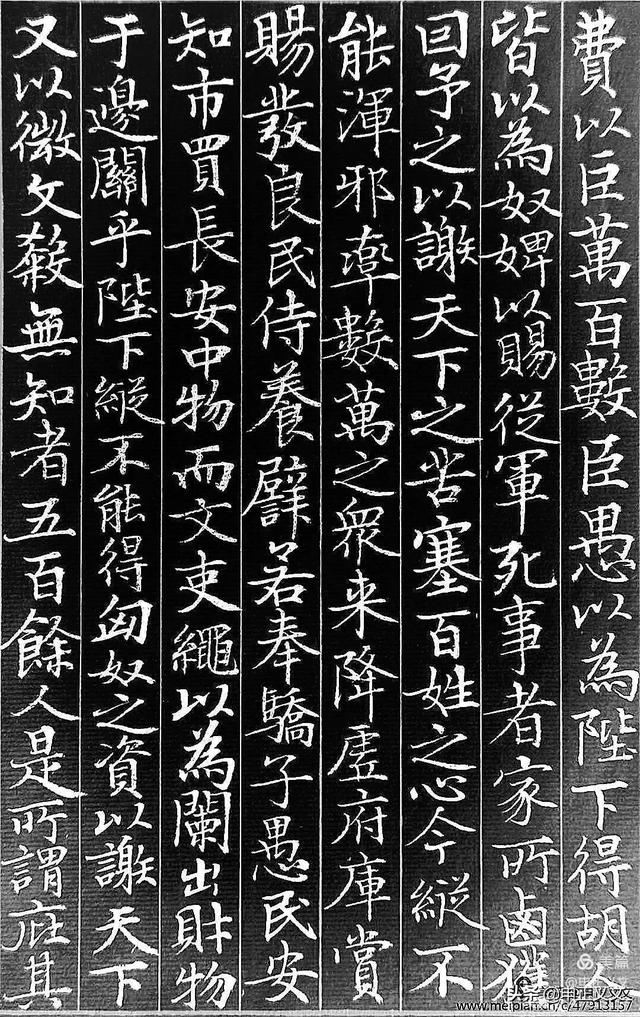 費以巨萬百數臣愚以為陛下得胡人
皆以為奴婢以賜從軍死事者家所鹵獲
因予之以謝天下之苦塞百姓之心今縱不
能渾邪率數萬之衆来降虛府庫賞
賜發良民侍養譬若奉驕子愚民安
知市買長安中物而文吏繩以為闌出財物
于邊關乎陛下縱不能得匈奴之資以謝天下
又以微文殺無知者五百餘人是所謂庇其
美篇
www.meipian.cn/c/47913157